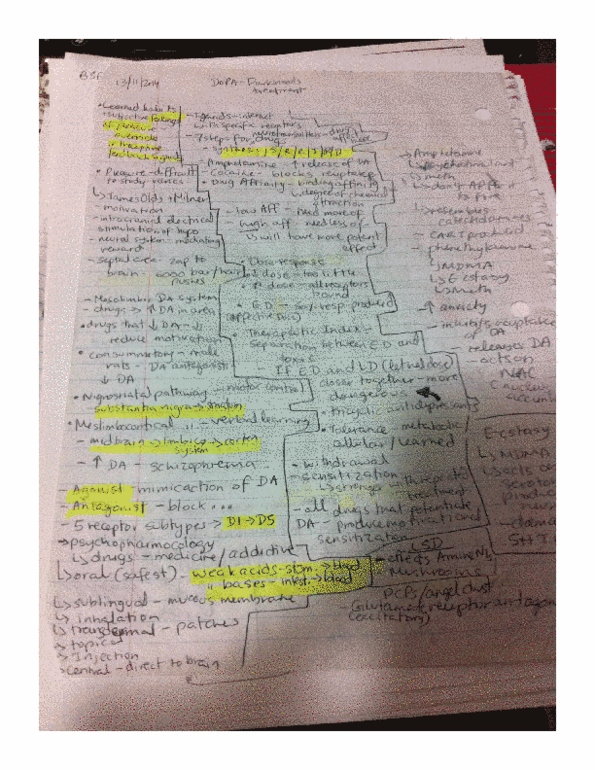 BSE
13/11/2014
DOPA - Parkinsons
treatment
• Learned habits
subjective feelings
of pleasure
override
feedback signals
• Pleasure - difficult
to study
↳ James Olds + Milner
- motivation
- intracranial electrical
stimulation of hypo
- neural system - mediating
reward
- septal area - zap to
brain - 6000 bar/hour
pushes
- Mesolimbic DA system
- drugs → ↑ DA in area
• drugs that ↓ DA - ↓
reduce motivation
• consummatory - male
rats - DA antagonists
↓ DA
• Nigrostriatal pathway - motor control
substantia nigra → striatum
• Meslimbocortical " - verbal learning
- midbrain → limbic → cortex
system
- ↑ DA - schizophrenia
- Agonist mimic action of DA
- Antagonist - block ...
- 5 receptor subtypes > D1 → D5
→ psychopharmacology
↳ drugs - medicine / addictive
↳ oral (safest) - weak acids - stom. → blood
" bases - intest. → blood
↳ sublingual - mucous membrane
↳ inhalation
↳ transdermal - patches
↳ topical
→ Injection
→ central - direct to brain
- ligands - interact
with specific receptors
- 7 steps for drug
- Amphetamine ↑ release of DA
- cocaine - blocks reuptake
• Drug Affinity - binding affinity
degree of chemical
attraction
- low Aff - need more of
- high aff - need less of
↳ will have more potent
effect
• Dose-response
↓ dose - too little
↑ dose - all receptors
bound
• ED - 50% resp. produced
(effective dose)
• Therapeutic Index -
separation between ED and
toxic
- If ED and LD (lethal dose)
closer together - more
dangerous
• tricyclic antidepressants
• Tolerance - metabolic
cellular / learned
• withdrawal
- sensitization
↳ stronger with repeated
treatment
- all drugs that potentiate
DA - produce motivational
sensitization
→ Amphetamine
↳ psychostimulant
→ meth
↳ don't AP for it
to fire
↳ resembles
catecholamines
- CART produced
- phenethylamine
↳ MDMA
↳ Ecstasy
↳ Meth
- ↑ anxiety
- inhibits reuptake
of DA
- releases DA
- acts on
NAC
(nucleus
Ecstasy
↳ MDMA
↳ acts on
seroto
produc
5HT
LSD
- effects Amine NT
Mushrooms
PCPs / angel dust
- Glutamate receptor antagon
(excitatory)